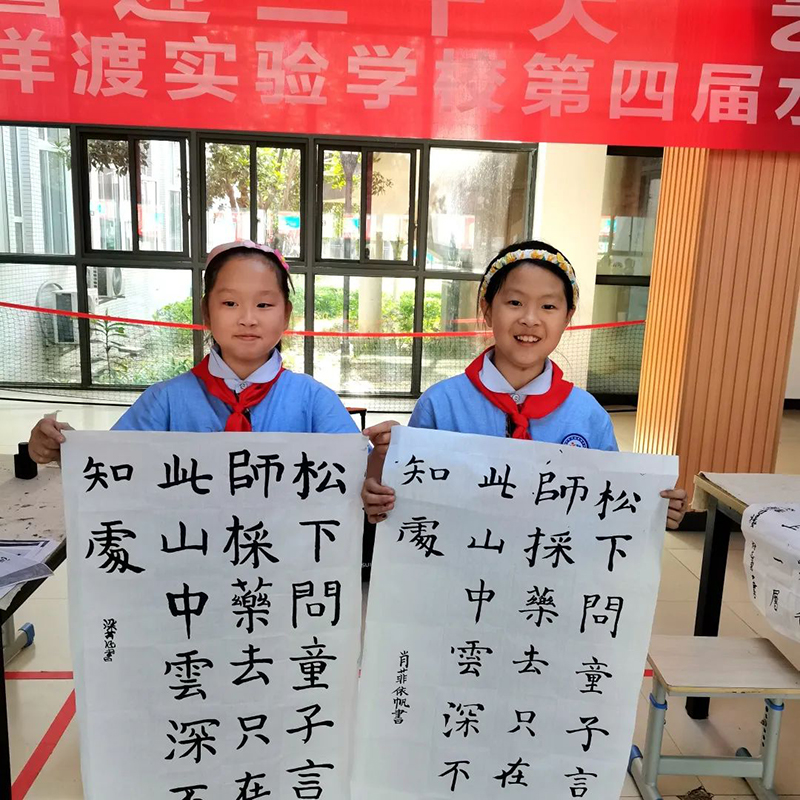 迎二十大
洋渡实验学校第四届水
松下問童子言
師採藥去只在
此山中雲深不
知處
書
松下問童子言
師採藥去只在
此山中雲深不
知處
肖菲依帆書